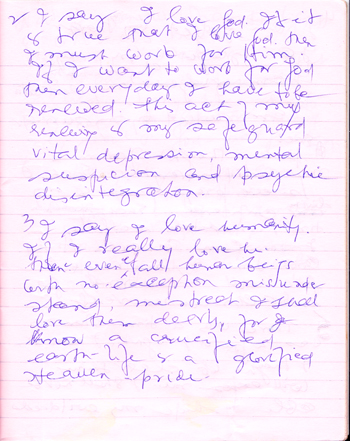 2 I say I love God. If it
is true that I love God, then
I must work for Him.
If I want to work for God
then everyday I have to be
renewed. This act of my
renewing is my safeguard
vital depression, mental
suspicion and psychic
disintegration.
3 I say I love humanity.
If I really love hu.
then even if all human beings
with no exception misunder
stand, mistreat I shall
love them dearly, for I
know a crucified
earth-life is a glorified
Heaven-pride.